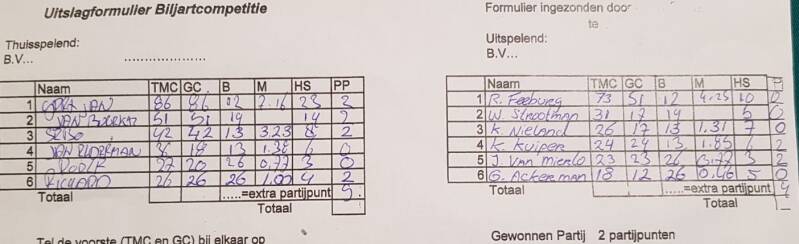 Uitslagformulier Biljartcompetitie
Thuisspelend:
B.V... .....................
Naam TMC GC B M HS PP
1 VAN 86 86 12 7.16 23 2
2 VAN 51 51 19 14 2
3 42 42 13 3.23 8 2
4 VAN 18 13 1.38 6 0
5 27 20 26 0,77 3 0
6 RICHARD 26 26 26 1,00 4 2
Totaal .....=extra partijpunt 9.
Totaal
Tel de voorste (TMC en GC) bij elkaar op
Formulier ingezonden door
te
Uitspelend:
B.V...
Naam TMC GC B M HS
1 R. Feeburg 73 51 12 4.25 10 0
2 W. Strootman 31 17 19 5 0
3 K. Nieland 26 17 13 1.31 7 0
4 K. Kuiper 24 24 13 1.85 6 2
5 J. Van Mierlo 23 23 26 0.77 3 2
6 G. Ackerman 18 12 26 0.46 5 0
Totaal .....=extra partijpunt 4
Totaal
Gewonnen Partij 2 partijpunten